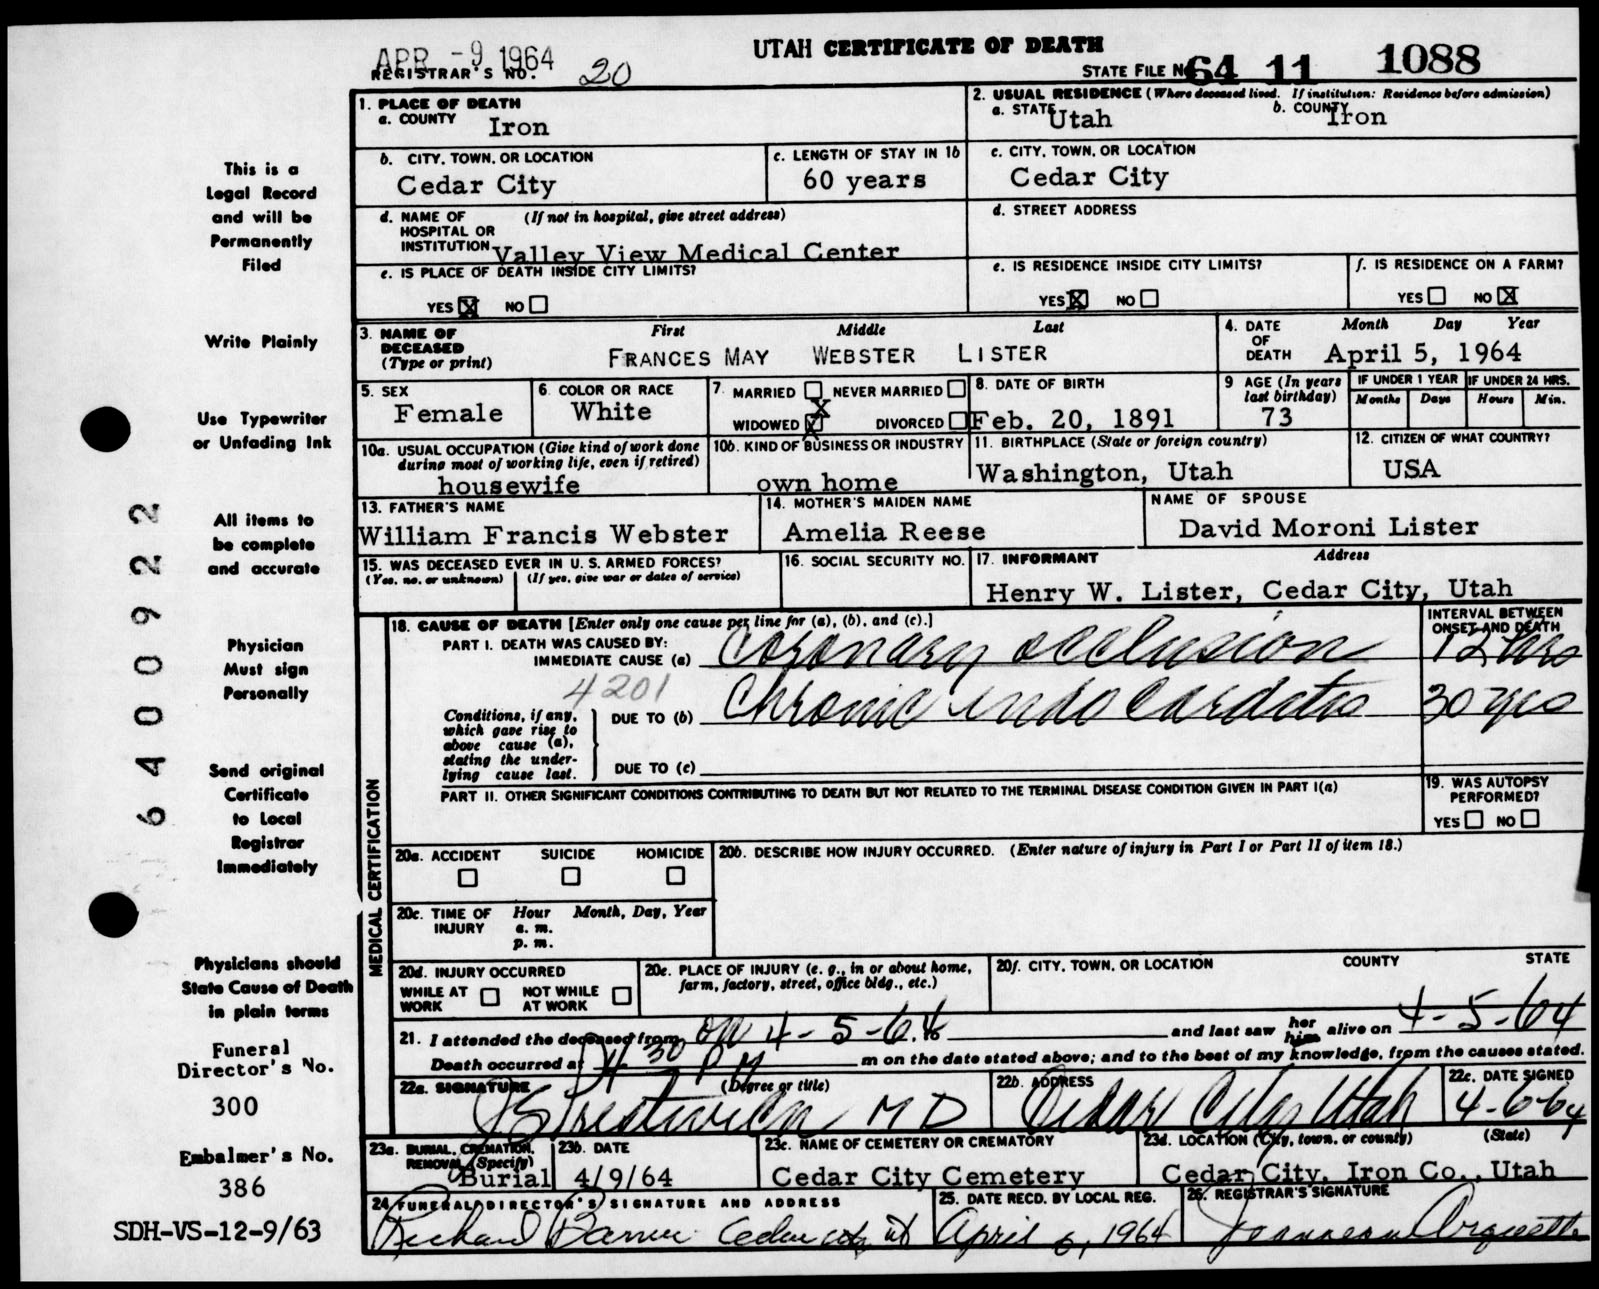 APR -9 1964
UTAH CERTIFICATE OF DEATH
REGISTRAR'S NO. 20
STATE FILE NO. 64 11 1088
1. PLACE OF DEATH
a. COUNTY Iron
2. USUAL RESIDENCE (Where deceased lived. If institution: Residence before admission)
a. STATE Utah b. COUNTY Iron
b. CITY, TOWN, OR LOCATION Cedar City
c. LENGTH OF STAY IN 1b 60 years
c. CITY, TOWN, OR LOCATION Cedar City
d. NAME OF HOSPITAL OR INSTITUTION (If not in hospital, give street address) Valley View Medical Center
d. STREET ADDRESS
e. IS PLACE OF DEATH INSIDE CITY LIMITS?
YES X NO
e. IS RESIDENCE INSIDE CITY LIMITS?
YES X NO
f. IS RESIDENCE ON A FARM?
YES NO X
3. NAME OF DECEASED (Type or print)
First Middle Last
FRANCES MAY WEBSTER LISTER
4. DATE OF DEATH Month Day Year
April 5, 1964
5. SEX Female
6. COLOR OR RACE White
7. MARRIED NEVER MARRIED
WIDOWED X DIVORCED
8. DATE OF BIRTH Feb. 20, 1891
9 AGE (In years last birthday) 73
IF UNDER 1 YEAR Months Days
IF UNDER 24 HRS. Hours Min.
10a. USUAL OCCUPATION (Give kind of work done during most of working life, even if retired) housewife
10b. KIND OF BUSINESS OR INDUSTRY own home
11. BIRTHPLACE (State or foreign country) Washington, Utah
12. CITIZEN OF WHAT COUNTRY? USA
13. FATHER'S NAME William Francis Webster
14. MOTHER'S MAIDEN NAME Amelia Reese
NAME OF SPOUSE David Moroni Lister
15. WAS DECEASED EVER IN U. S. ARMED FORCES?
(Yes, no, or unknown) (If yes, give war or dates of service)
16. SOCIAL SECURITY NO.
17. INFORMANT Address
Henry W. Lister, Cedar City, Utah
18. CAUSE OF DEATH [Enter only one cause per line for (a), (b), and (c).]
INTERVAL BETWEEN ONSET AND DEATH
PART I. DEATH WAS CAUSED BY:
IMMEDIATE CAUSE (a) Coronary occlusion 12 hrs
4201
Conditions, if any, which gave rise to above cause (a), stating the underlying cause last.
DUE TO (b) Chronic indo carditis 30 yrs
DUE TO (c)
PART II. OTHER SIGNIFICANT CONDITIONS CONTRIBUTING TO DEATH BUT NOT RELATED TO THE TERMINAL DISEASE CONDITION GIVEN IN PART I(a)
19. WAS AUTOPSY PERFORMED?
YES NO
MEDICAL CERTIFICATION
20a. ACCIDENT SUICIDE HOMICIDE
20b. DESCRIBE HOW INJURY OCCURRED. (Enter nature of injury in Part I or Part II of item 18.)
20c. TIME OF INJURY Hour Month, Day, Year
a. m.
p. m.
20d. INJURY OCCURRED
WHILE AT WORK NOT WHILE AT WORK
20e. PLACE OF INJURY (e. g., in or about home, farm, factory, street, office bldg., etc.)
20f. CITY, TOWN, OR LOCATION COUNTY STATE
21. I attended the deceased from on 4-5-64 and last saw her him alive on 4-5-64
Death occurred at 4 30 PM m on the date stated above; and to the best of my knowledge, from the causes stated.
22a. SIGNATURE (Degree or title) MD
22b. ADDRESS Cedar City, Utah
22c. DATE SIGNED 4-6-64
23a. BURIAL, CREMATION, REMOVAL (Specify) Burial
23b. DATE 4/9/64
23c. NAME OF CEMETERY OR CREMATORY Cedar City Cemetery
23d. LOCATION (City, town, or county) (State)
Cedar City, Iron Co., Utah
24. FUNERAL DIRECTOR'S SIGNATURE AND ADDRESS
Richard Cedar City ut
25. DATE RECD. BY LOCAL REG. April 6, 1964
26. REGISTRAR'S SIGNATURE
This is a
Legal Record
and will be
Permanently
Filed
Write Plainly
Use Typewriter
or Unfading Ink
All items to
be complete
and accurate
Physician
Must sign
Personally
Send original
Certificate
to Local
Registrar
Immediately
Physicians should
State Cause of Death
in plain terms
Funeral
Director's No.
300
Embalmer's No.
386
SDH-VS-12-9/63
6400922